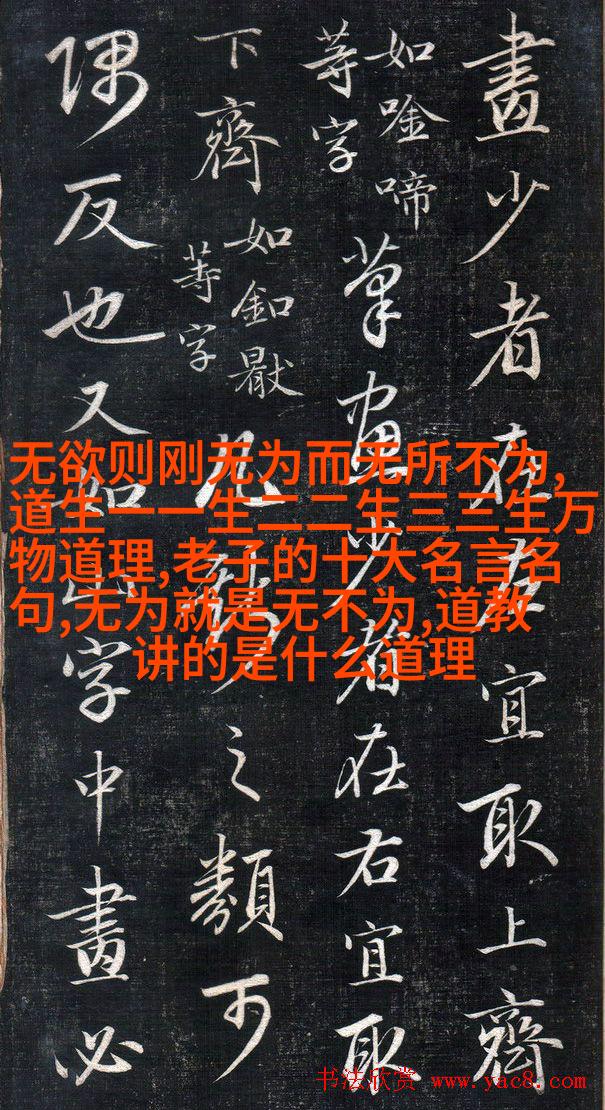 畫少者在左宜取上齊
如唫啼
等字
筆畫少者在右宜取
下齊
如釦
等字
凡之類可
隅反也又如山字中畫必
无欲则刚无为而无所不为,
道生一一生二二生三三生万
物道理,老子的十大名言名
句,无为就是无不为,道教
讲的是什么道理
书法欣赏 www.yac8.com